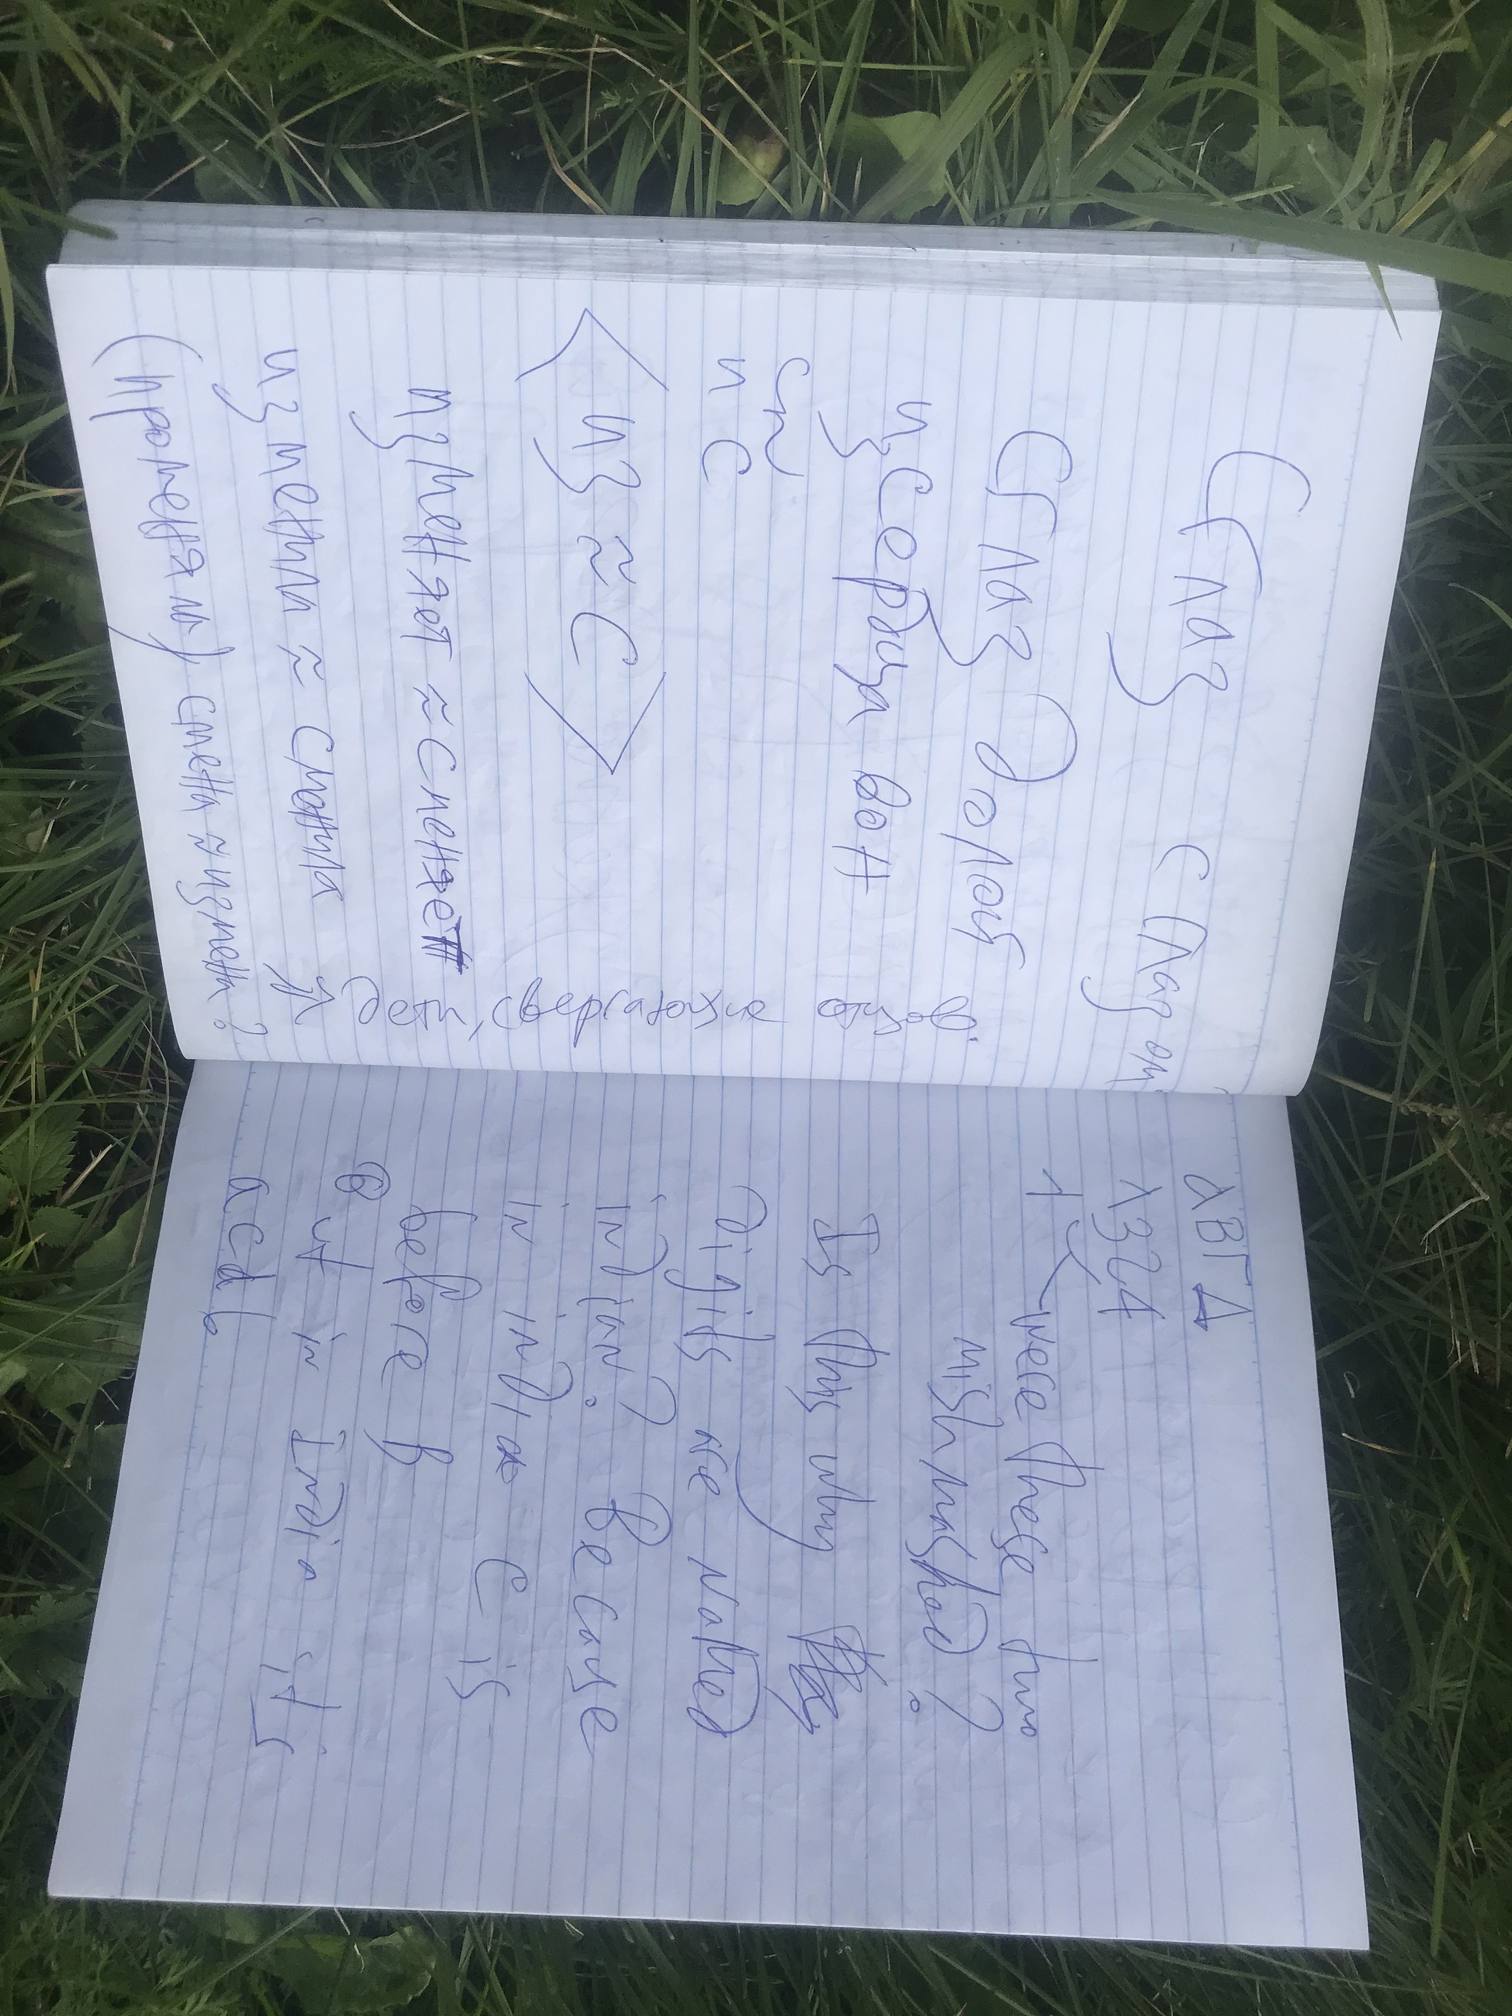 Сглаз с глаз
Сглаз долой
из сердца вон
с~
и с
< из ≈ с >
изменяет ≈ сменяет
измена ≈ смена
(променял) смена ≈ измена?
Дети, свергающие отцов.
αΒΓΔ
λ324
1
were these two
mishmashed?
Is this why
Digits are named
indian? Because
in india C is
before B
But in India it's
acdb